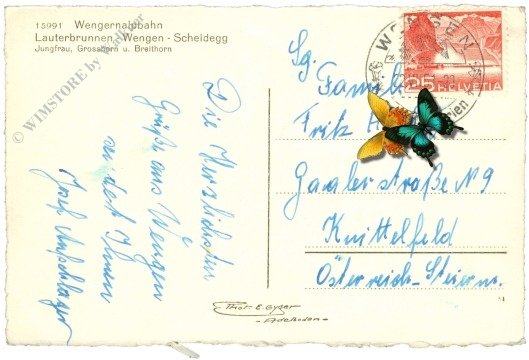 15991 Wengernalpbahn
Lauterbrunnen - Wengen - Scheidegg
Jungfrau, Grosshorn u. Breithorn
© WIMSTORE by
Die Herzlichsten
Grüße aus Wengen
sendet Ihnen
Josef
Sg.
Familie
Fritz
Gaalerstraße N 9
Knittelfeld
Österreich - Steierm.
WENGEN
25
HELVETIA
Phot. E. Gyger
- Adelboden -